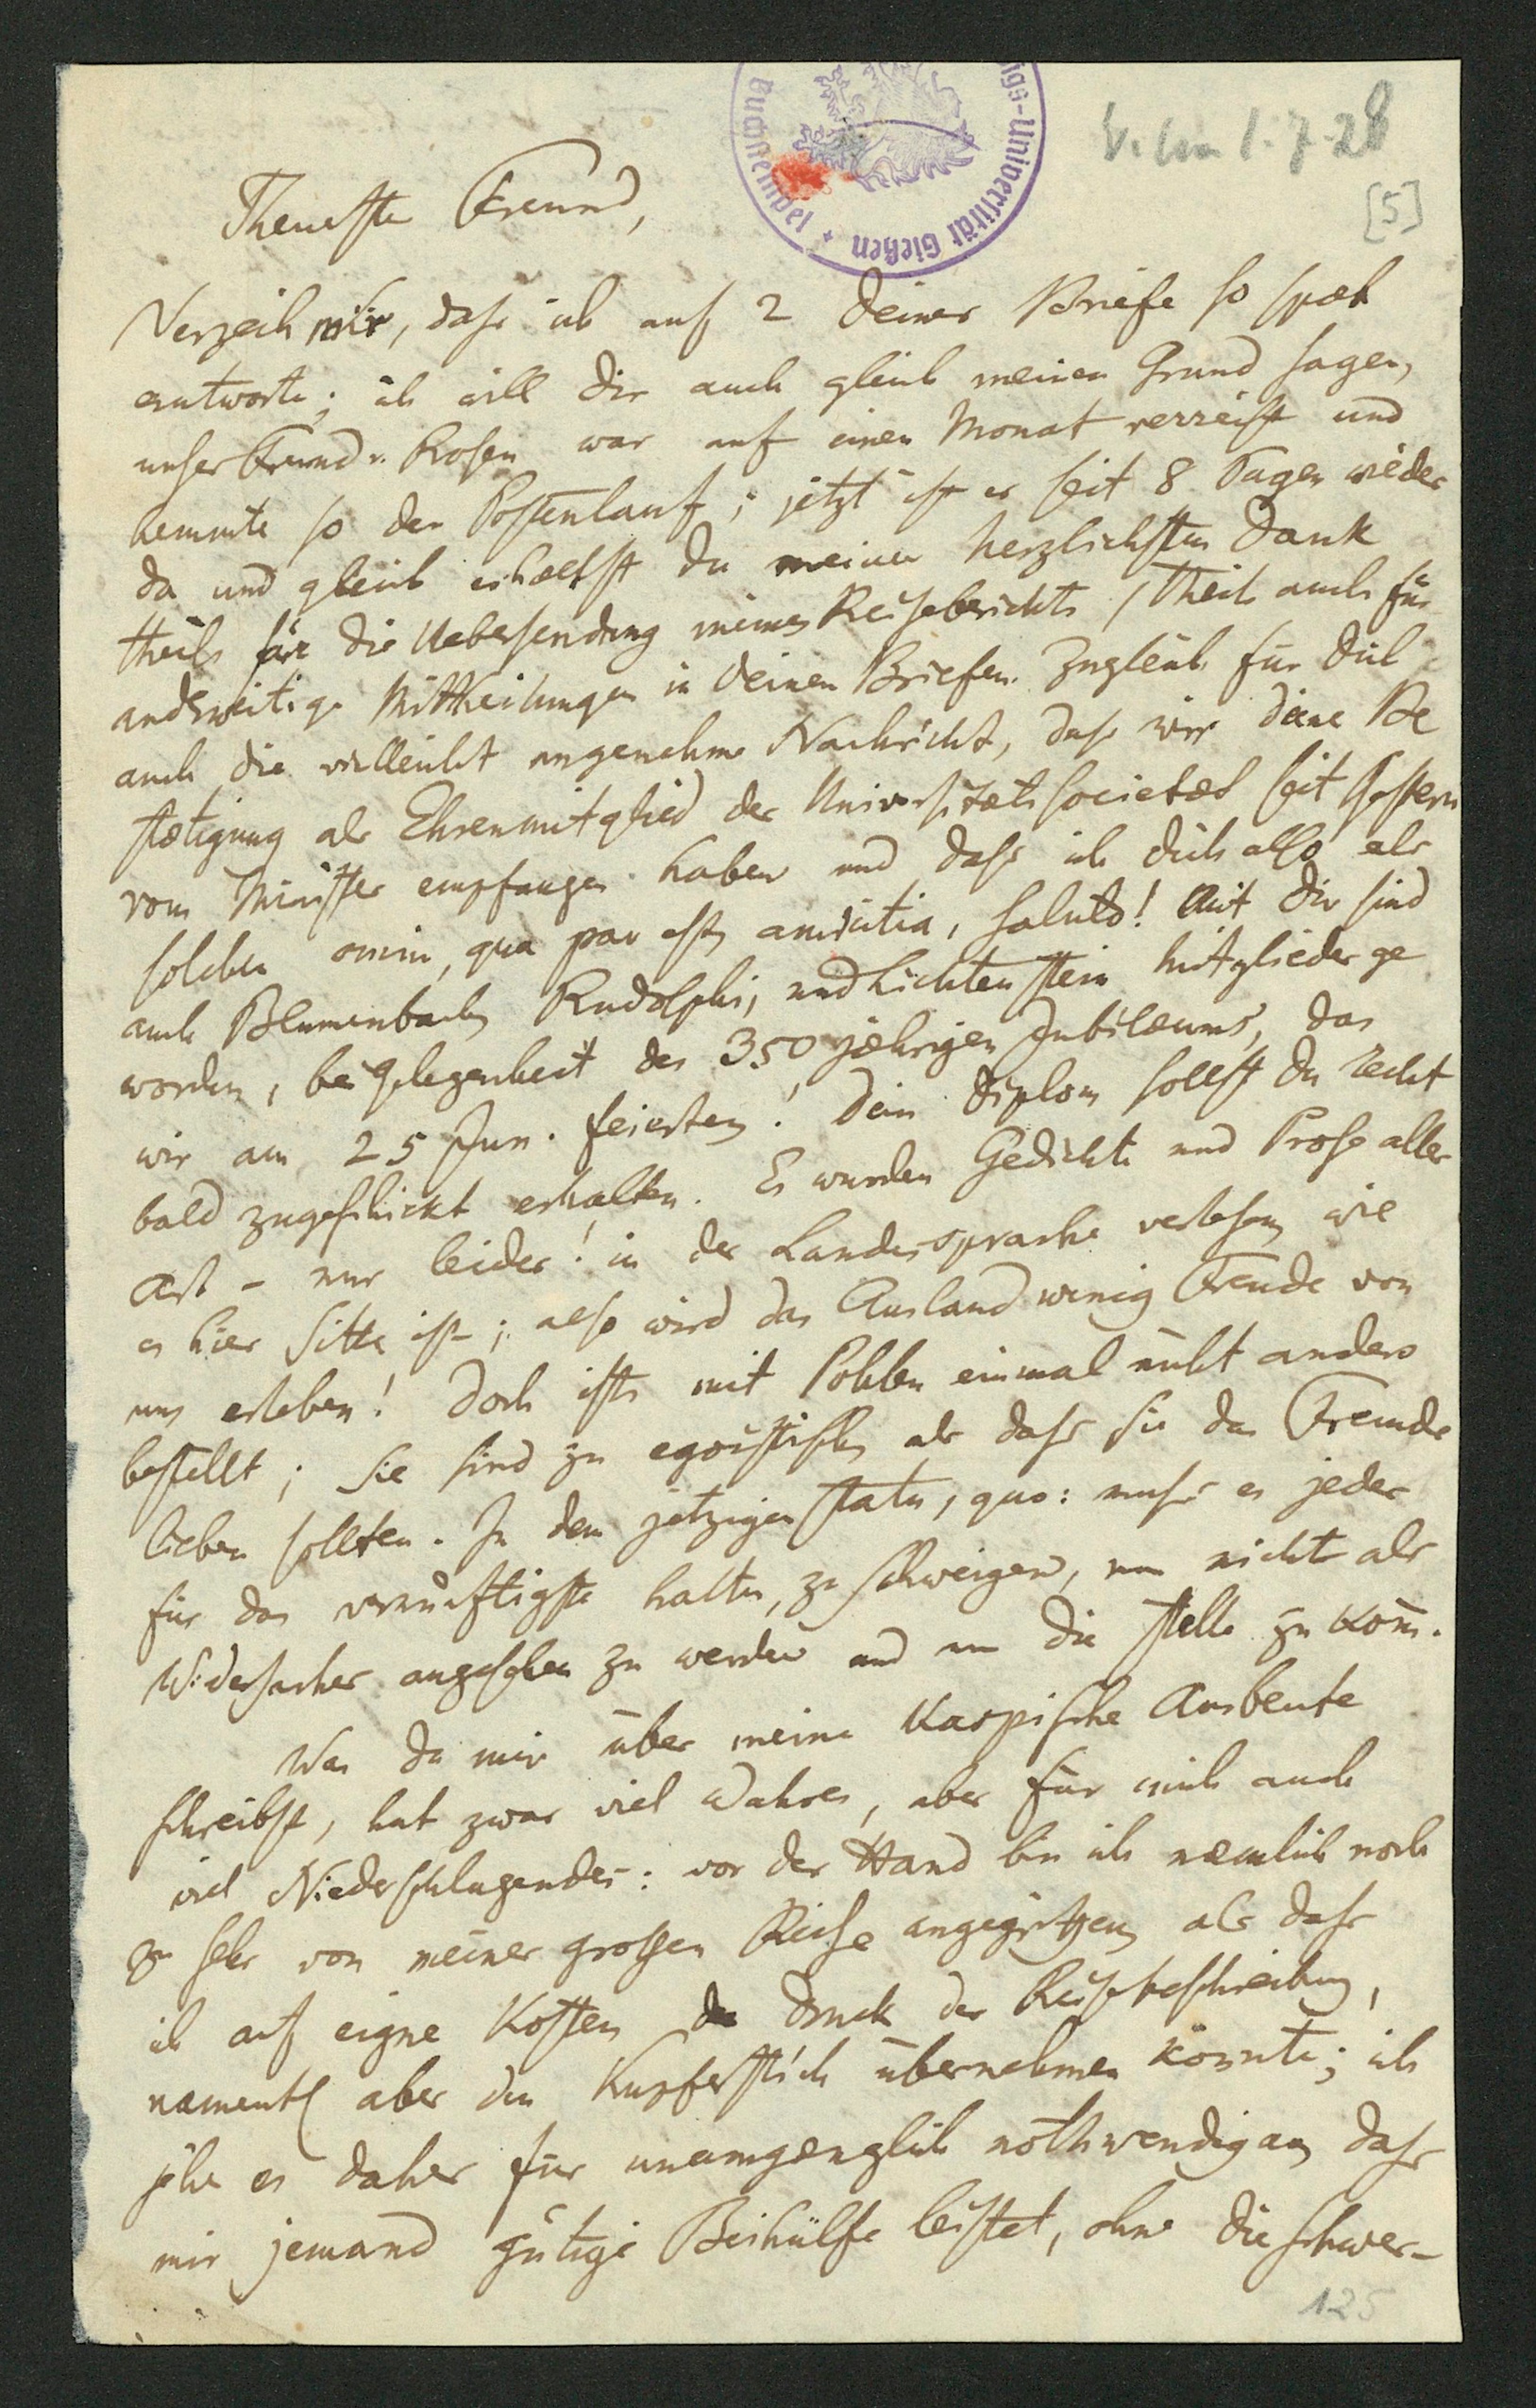 Wilna 1.7.28
[5]
igs-Universität Gießen * Buchstempel
Theuerster Freund,
Verzeih mir, dass ich auf 2 Deiner Briefe so spæt
antworte; ich will dir auch gleich meinen Grund sagen,
unser Freund v. Rosen war auf einen Monat verreist und
hemmte so den Postenlauf; jetzt ist er seit 8 Tagen wieder
da und gleich erhaeltst du meinen herzlichsten Dank
theils für die Uebersendung meines Reiseberichts, theils auch für
anderweitige Mittheilungen in deinen Briefen. Zugleich für dich
auch die vielleicht angenehme Nachricht, dass wir deine Be
stætigung als Ehrenmitglied der Universitætssocietæt seit gestern
vom Minister empfangen haben und dass ich dich also als
solchen omni, qua par est, amicitia, saluto! Mit dir sind
auch Blumenbach, Rudolphi, und Lichtenstein Mitglieder ge
worden, bei Gelegenheit des 350 jæhrigen Jubilæums, das
wir am 25 Jun. feierten! Dein Diplom sollst du recht
bald zugeschickt erhalten. Es wurden Gedichte und Prose aller
Art - nur leider! in der Landessprache verlesen, wie
es hier Sitte ist; also wird das Ausland wenig Freude von
uns erleben! Doch ists mit Pohlen einmal nicht anders
bestellt; sie sind zu egoistisch, als dass sie das Fremde
lieben sollten. In dem jetzigen statu, quo: muss es jeder
für das vernünftigste halten, zu schweigen, um nicht als
Widersacher angesehen zu werden und um die Stelle zu kom̄.
Was du mir über meine Kaspische Ausbeute
schreibst, hat zwar viel Wahres, aber für mich auch
viel Niederschlagendes: vor der Hand bin ich næmlich noch
zu sehr von meiner grossen Reise angegriffen, als dass
ich auf eigne Kosten den Druck der Reisebeschreibung,
namentl aber den Kupferstich übernehmen könnte; ich
sehe es daher für unumgænglich nothwendig an, dass
mir jemand gütige Beihülfe leistet, ohne die schwer-
125